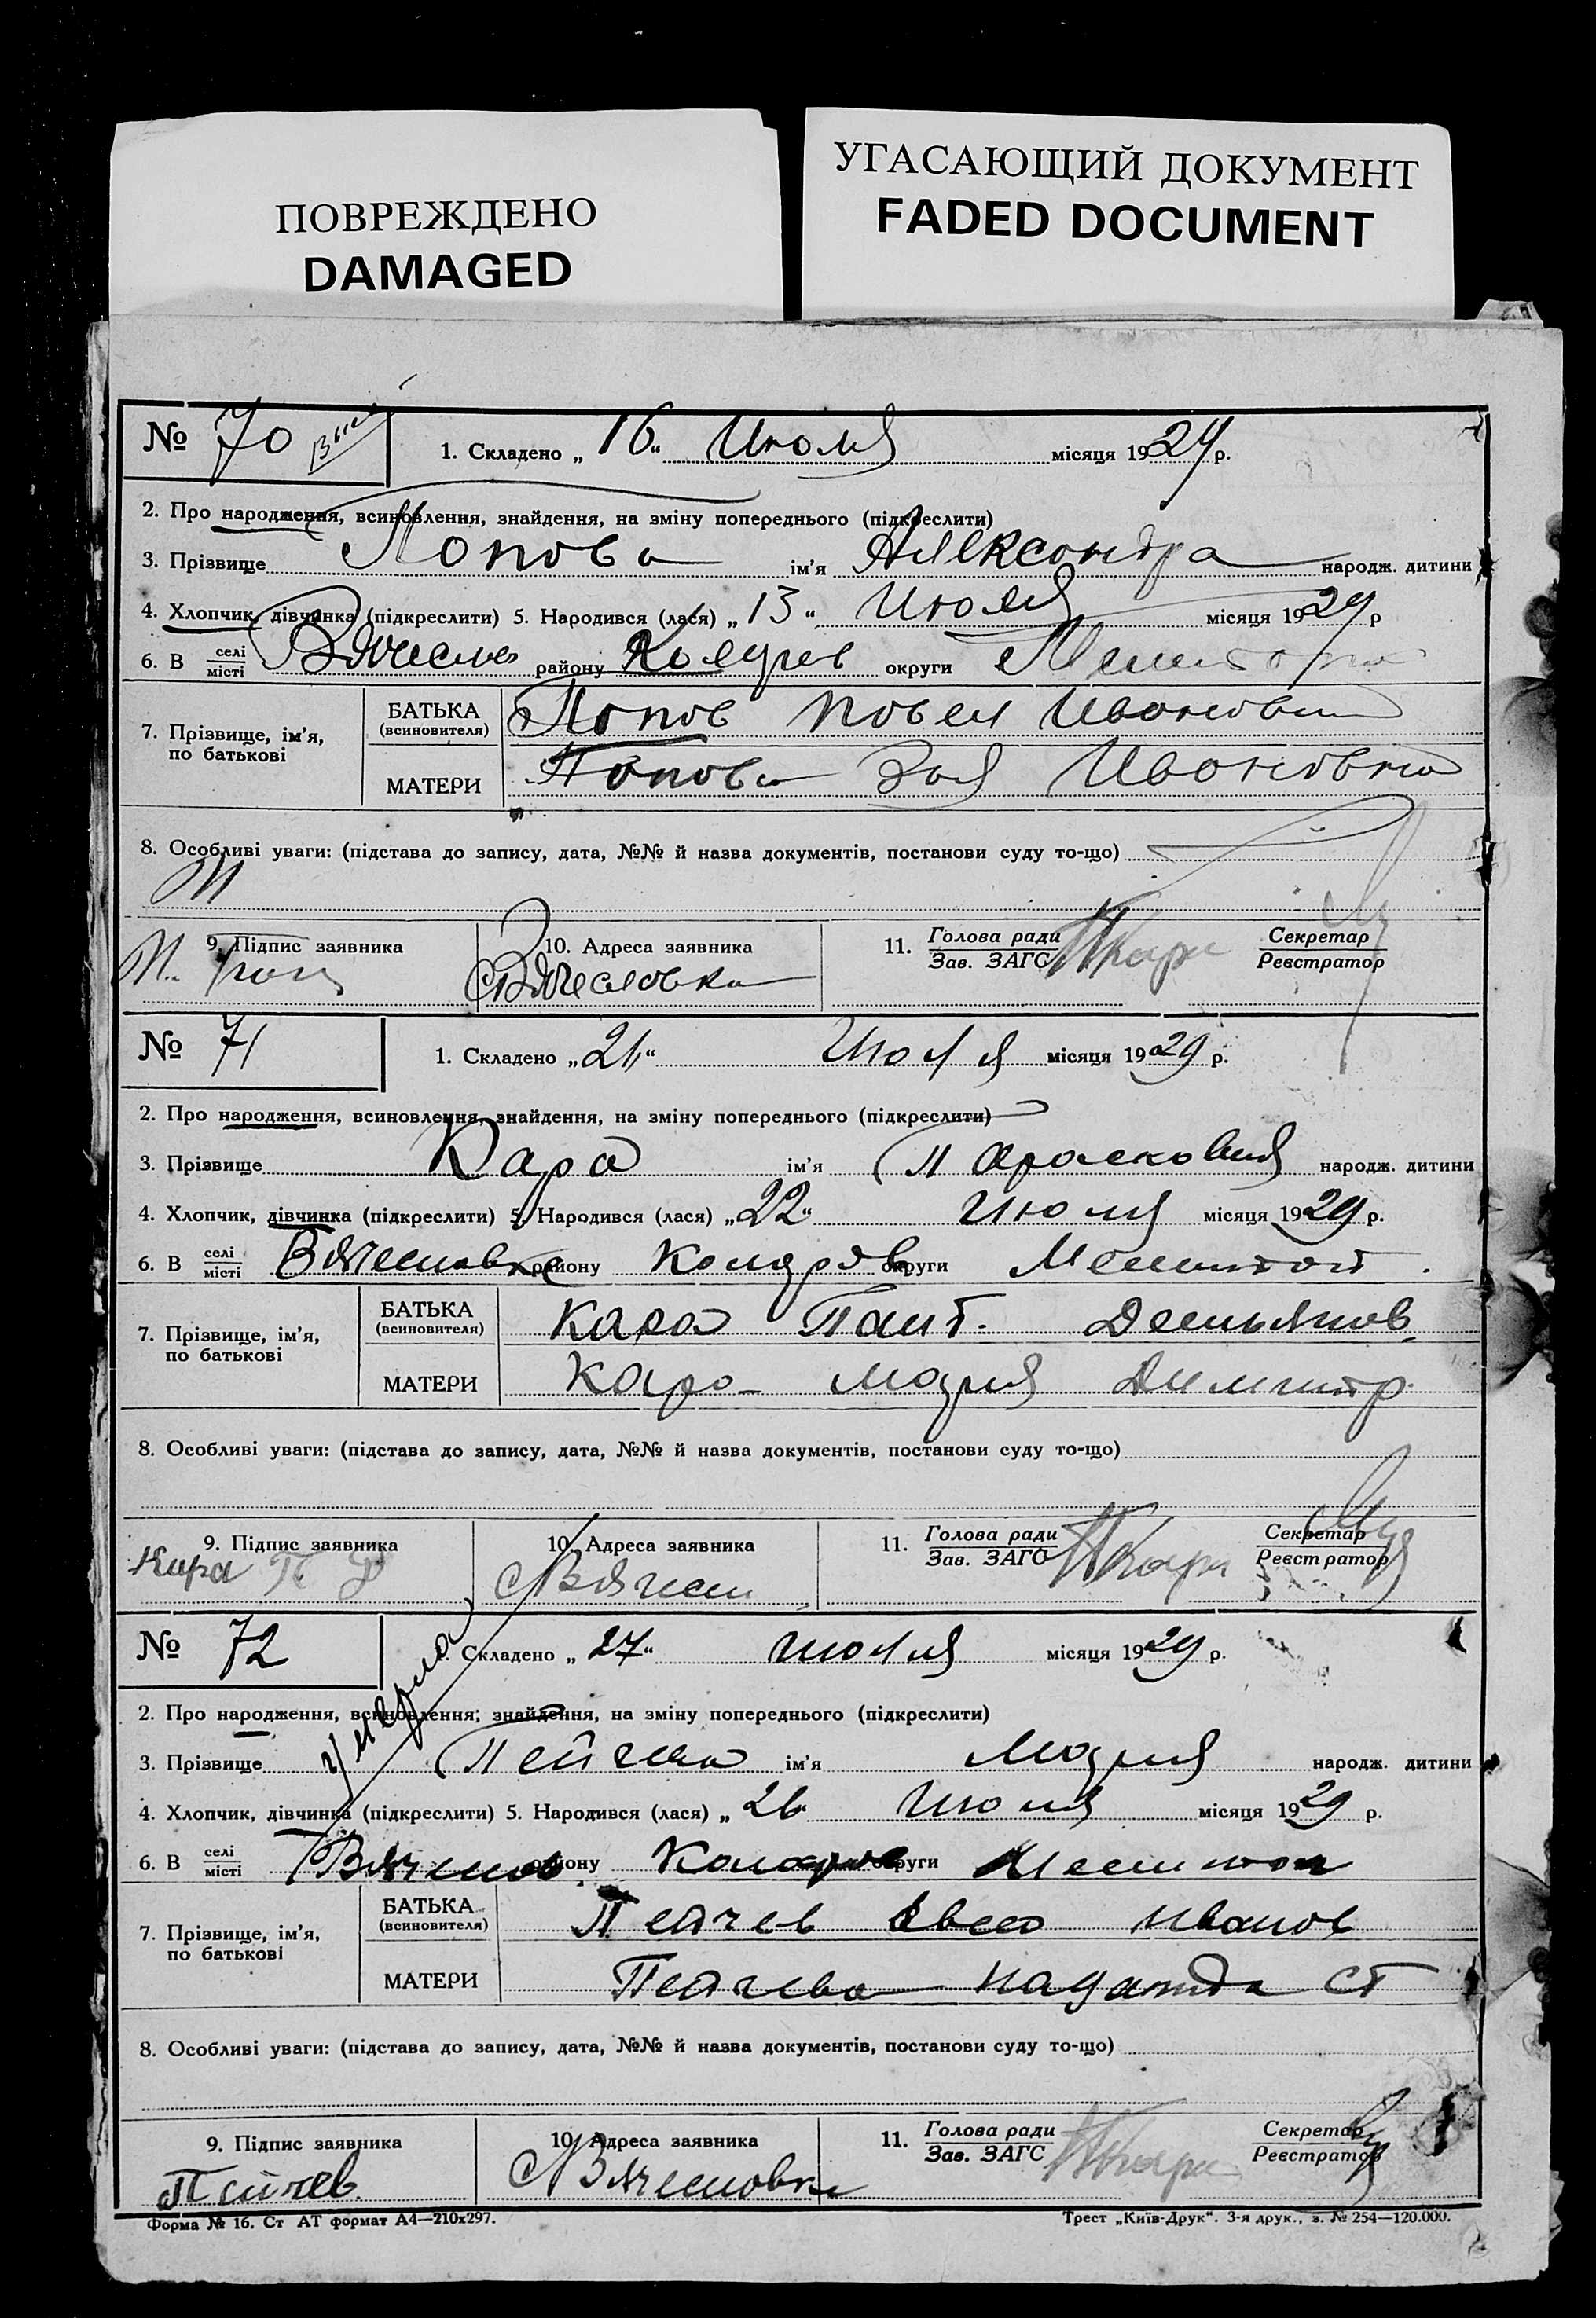 ПОВРЕЖДЕНО
DAMAGED
УГАСАЮЩИЙ ДОКУМЕНТ
FADED DOCUMENT
№ 70
1. Складено „ 16 “ Июля місяця 1929 р.
2. Про народження, всиновлення, знайдення, на зміну попереднього (підкреслити)
3. Прізвище Попова ім'я Александра народж. дитини
4. Хлопчик, дівчинка (підкреслити) 5. Народився (лася) „ 13 “ Июля місяця 1929 р
6. В селі місті району округи
7. Прізвище, ім'я, по батькові
БАТЬКА (всиновителя) Попов Иванович
МАТЕРИ Попова Зоя Ивановна
8. Особливі уваги: (підстава до запису, дата, №№ й назва документів, постанови суду то-що)
9. Підпис заявника
10. Адреса заявника Вячесловка
11. Голова ради Зав. ЗАГС Кара Секретар Реєстратор
№ 71
1. Складено „ 21 “ Июля місяця 1929 р.
2. Про народження, всиновлення, знайдення, на зміну попереднього (підкреслити)
3. Прізвище Кара ім'я Парасковия народж. дитини
4. Хлопчик, дівчинка (підкреслити) 5. Народився (лася) „ 22 “ Июля місяця 1929 р.
6. В селі місті району округи Мелитоп.
7. Прізвище, ім'я, по батькові
БАТЬКА (всиновителя) Кара Пант. Демьянов
МАТЕРИ Кара Мария Димитр.
8. Особливі уваги: (підстава до запису, дата, №№ й назва документів, постанови суду то-що)
9. Підпис заявника Кара П
10. Адреса заявника
11. Голова ради Зав. ЗАГС Кара Секретар Реєстратор
умерла
№ 72
1. Складено „ 27 “ июля місяця 1929 р.
2. Про народження, всиновлення; знайдення, на зміну попереднього (підкреслити)
3. Прізвище Пейчева ім'я Мария народж. дитини
4. Хлопчик, дівчинка (підкреслити) 5. Народився (лася) „ 26 Июля місяця 1929 р.
6. В селі місті району округи Мелитоп
7. Прізвище, ім'я, по батькові
БАТЬКА (всиновителя) Пейчев Иванов
МАТЕРИ Пейчева Надежда Ст
8. Особливі уваги: (підстава до запису, дата, №№ й назва документів, постанови суду то-що)
9. Підпис заявника Пейчев
10. Адреса заявника
11. Голова ради Зав. ЗАГС Кара Секретар Реєстратор
Форма № 16. Ст АТ формат А4—210х297.
Трест „Київ-Друк“. 3-я друк., з. № 254—120.000.